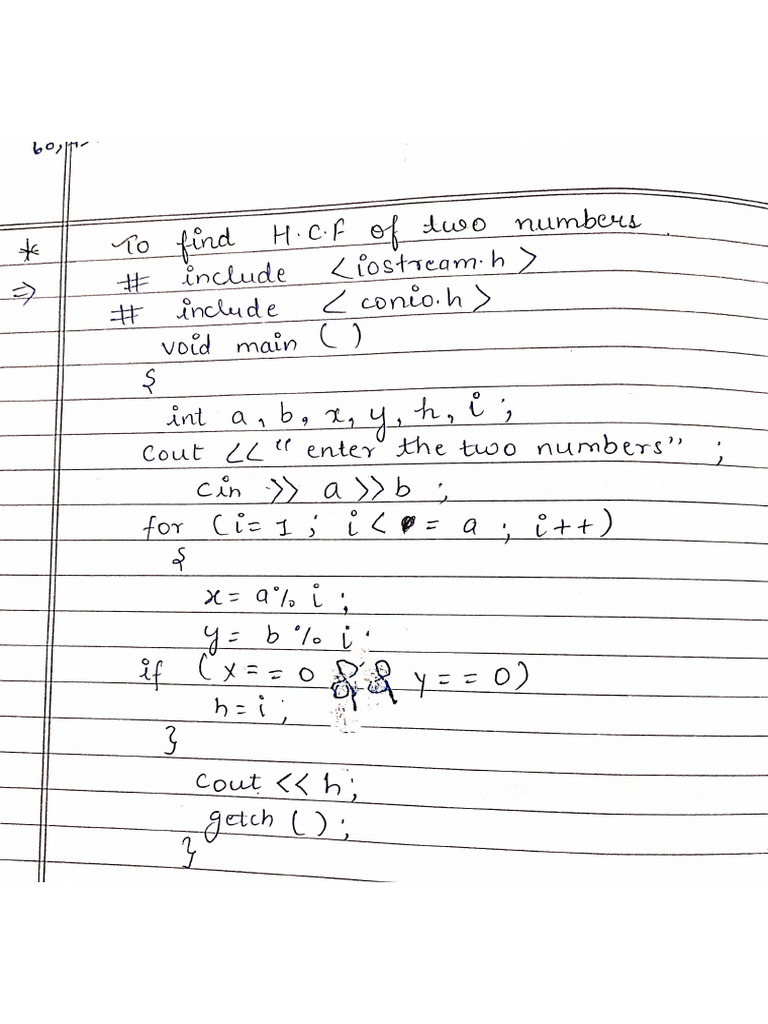 60,
* To find H.C.F of two numbers.
⇒ # include <iostream.h>
# include < conio.h >
void main ( )
{
int a, b, x, y, h, i ;
Cout << " enter the two numbers" ;
cin >> a >> b ;
for (i = 1 ; i < = a ; i++)
{
x = a % i ;
y = b % i ;
if (x = = 0 && y = = 0)
h = i ;
}
cout << h ;
getch ( ) ;
}